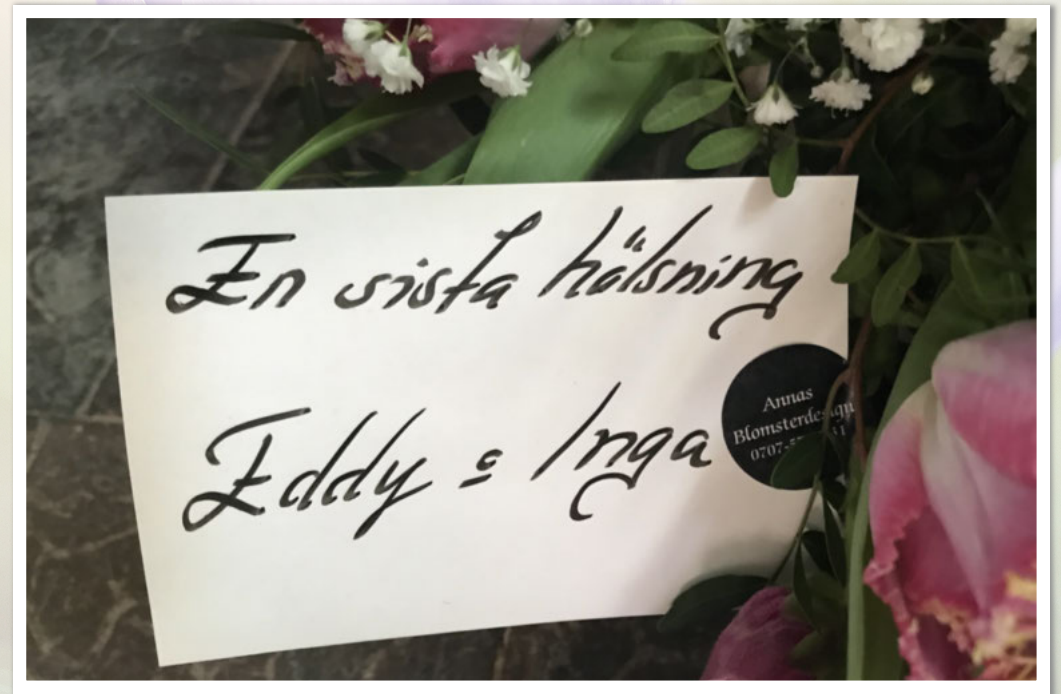 En sista hälsning
Eddy o Inga
Annas
Blomsterdesign
0707-